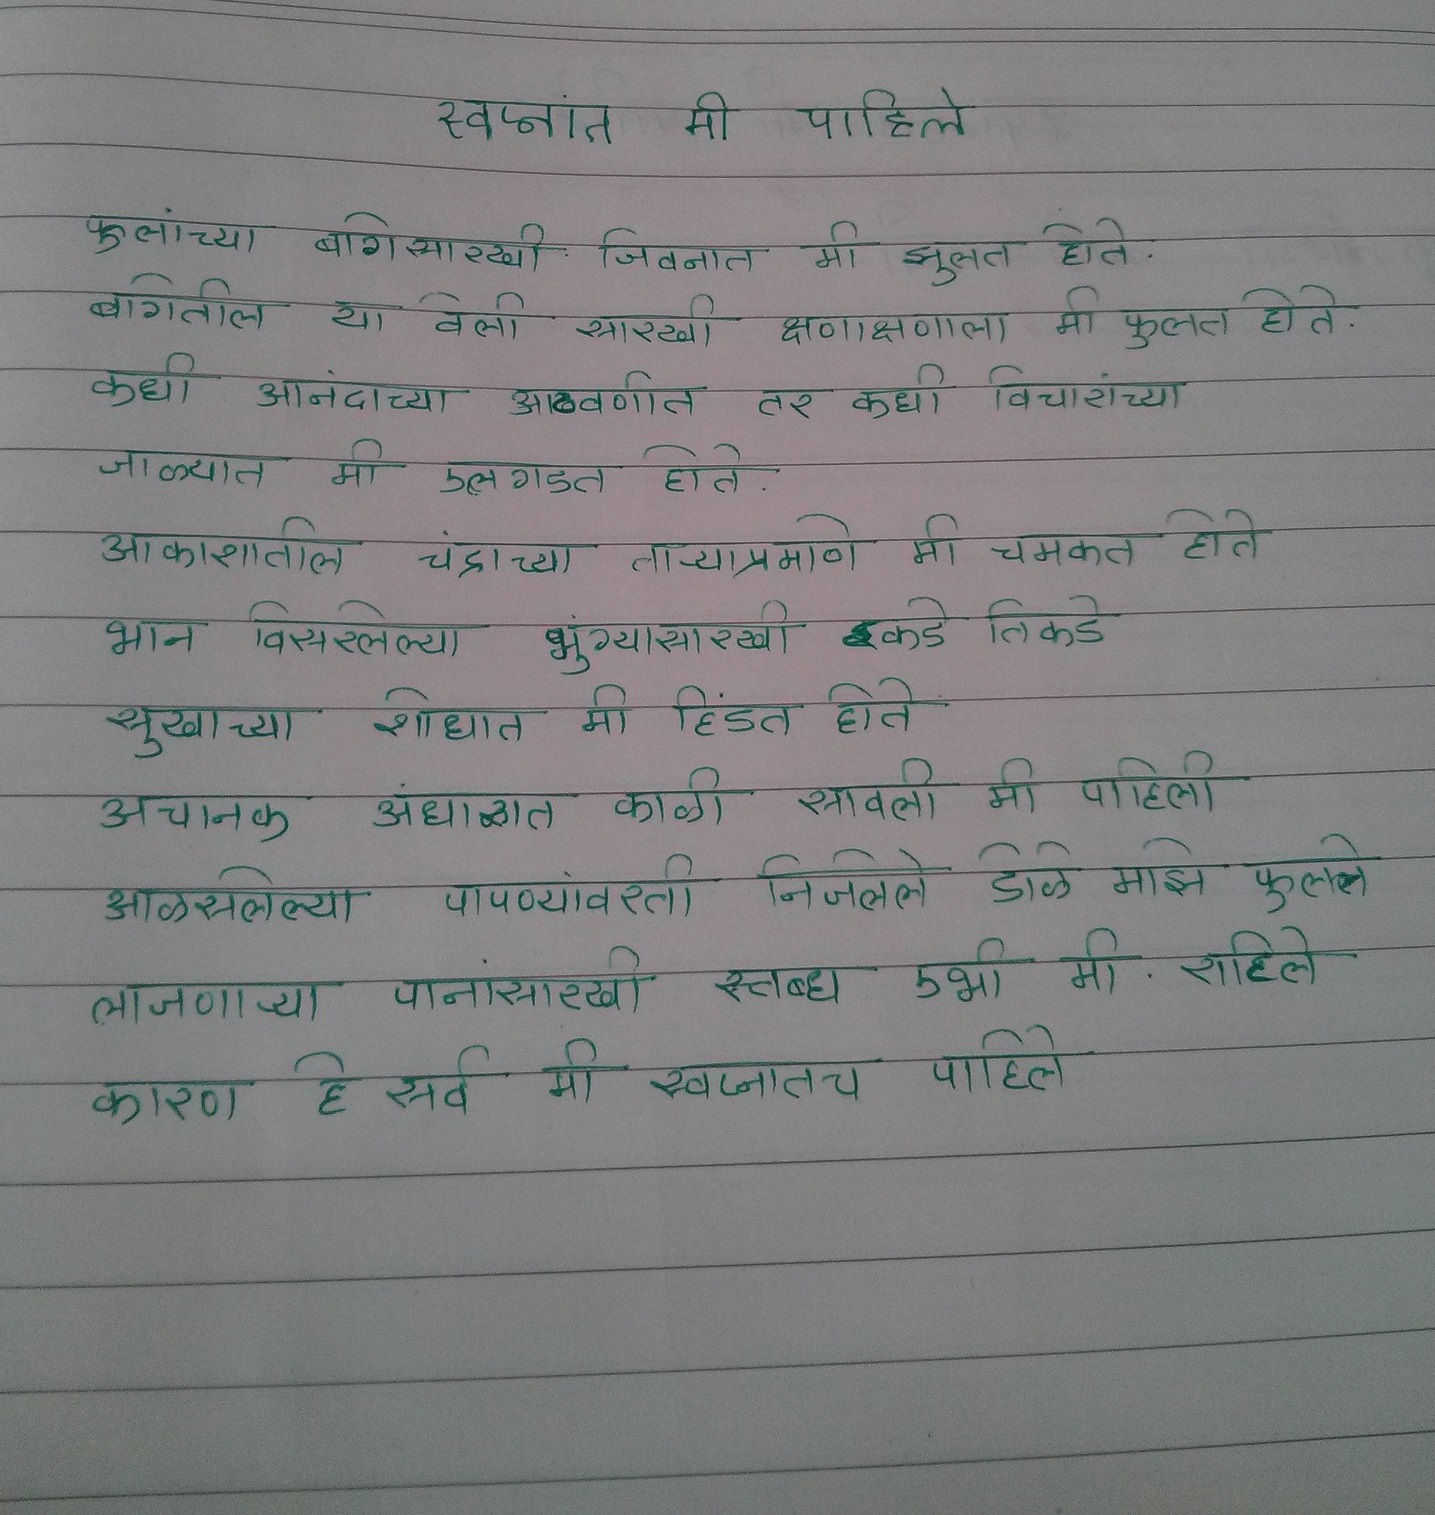 स्वप्नांत मी पाहिले
फुलांच्या बागेसारखी जिवनात मी झुलत होते.
बागेतील या वेली सारखी क्षणाक्षणाला मी फुलत होते.
कधी आनंदाच्या आठवणीत तर कधी विचारांच्या
जाळ्यात मी उलगडत होते.
आकाशातील चंद्राच्या ताऱ्याप्रमाणे मी चमकत होते
भान विसरलेल्या भुंग्यासारखी इकडे तिकडे
सुखाच्या शोधात मी हिंडत होते
अचानक अंधारात काळी सावली मी पाहिली
आळसलेल्या पापण्यांवरती निजलेले डोळे माझे फुलले
लाजणाऱ्या पानांसारखी स्तब्ध उभी मी. राहिले
कारण हे सर्व मी स्वप्नातच पाहिले